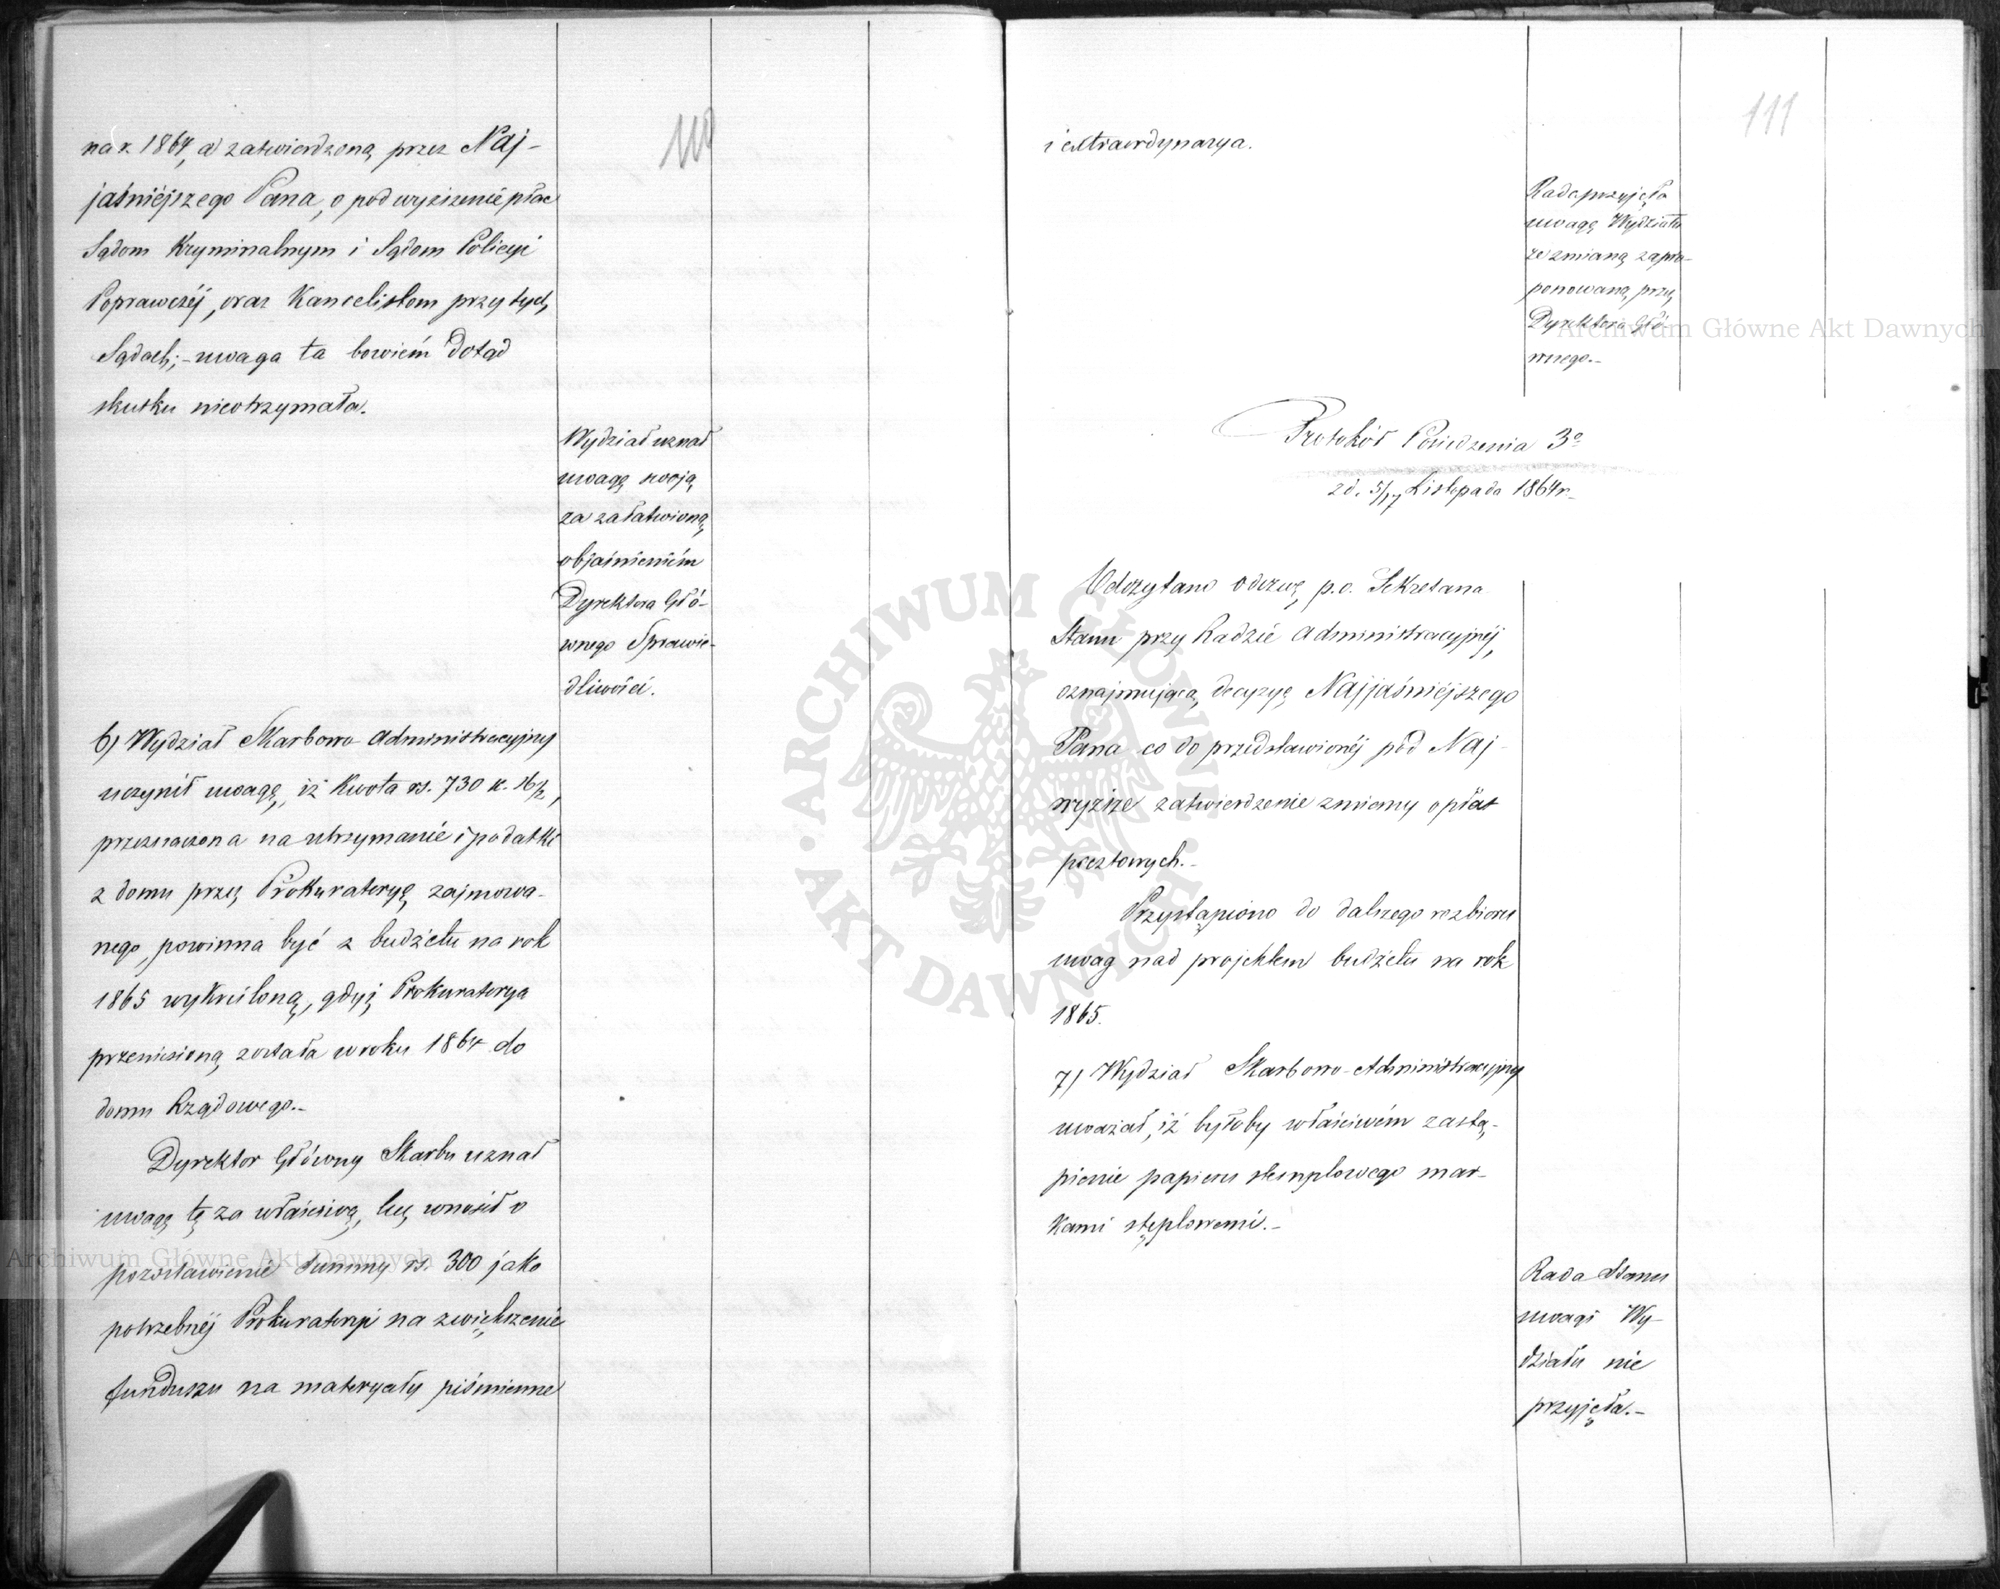 110
na r. 1864, a zatwierdzoną przez Naj-
jaśniéjszego Pana, o podwyższenie płac
Sądom Kryminalnym i Sądom Policyi
Poprawczéj, oraz Kancelistom przy tych
Sądach; - uwaga ta bowiém dotąd
skutku nieotrzymała.
Wydział uznał
uwagę swoją
za załatwioną
objaśnieniém
Dyrektora Głó-
wnego Sprawie-
dliwości.
6) Wydział Skarbowo Administracyjny
uczynił uwagę, iż kwota rs. 730 k. 16½,
przeznaczona na utrzymanie i podatki
z domu przez Prokuratoryę zajmowa-
nego, powinna być z budżetu na rok
1865 wykreśloną, gdyż Prokuratorya
przeniesioną została w roku 1864 do
domu Rządowego.-
Dyrektor Główny Skarbu uznał
uwagę tę za właściwą, lecz wnosił o
pozostawienie Summy rs. 300 jako
potrzebnéj Prokuratoryi na zwiększenie
funduszu na materyały piśmienne
111
i extraordynarya.
Rada przyjęła
uwagę Wydziału
ze zmianą zapro-
ponowaną przez
Dyrektora Głó-
wnego.-
Protokół Posiedzenia 3º
z d. 5/17 Listopada 1864 r.
Odczytano odezwę p.o. Sekretarza
Stanu przy Radzie Administracyjnéj,
oznajmującą decyzyę Najjaśniéjszego
Pana co do przedstawionéj pod Naj-
wyższe zatwierdzenie zmiany opłat
pocztowych.-
Przystąpiono do dalszego rozbioru
uwag nad projektem budżetu na rok
1865.
7) Wydział Skarbowo-Administracyjny
uważał, iż byłoby właściwém zastą-
pienie papieru stemplowego mar-
kami stęplowemi.-
Rada Stanu
uwagi Wy-
działu nie
przyjęła.-
ARCHIWUM GŁÓWNE AKT DAWNYCH
Archiwum Główne Akt Dawnych
Archiwum Główne Akt Dawnych